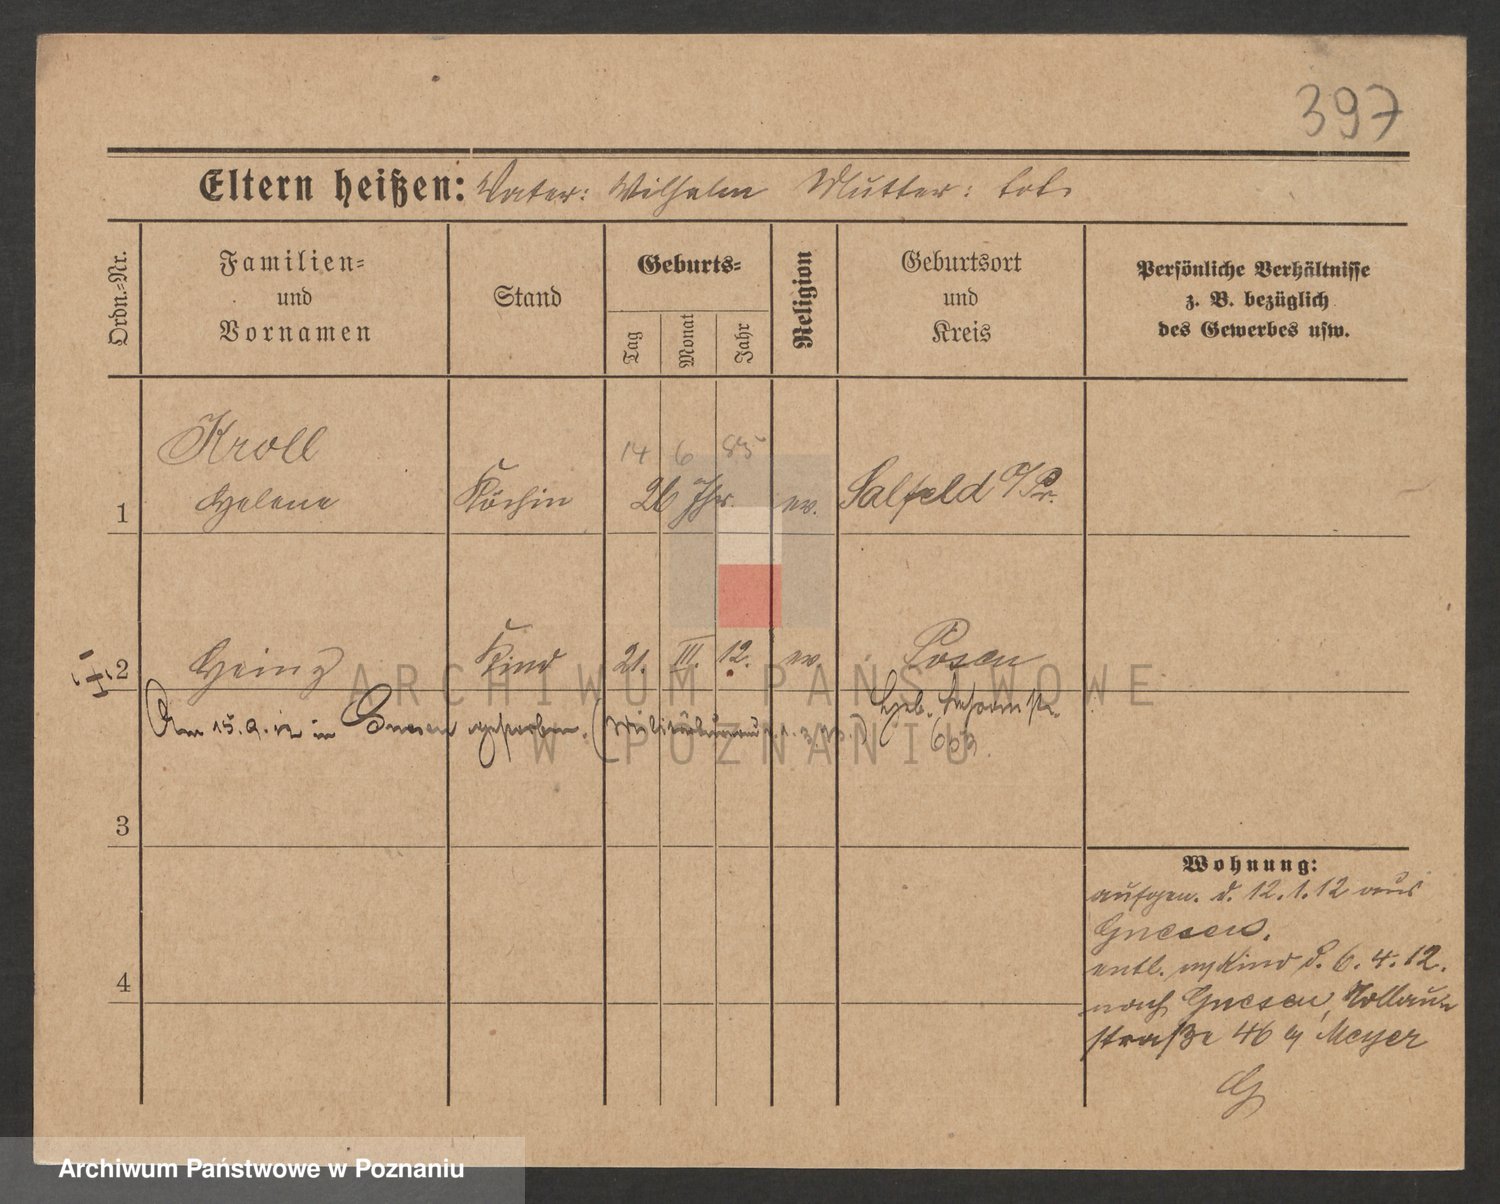 397
Eltern heißen: Vater: Wilhelm Mutter: tot.
Ordn.=Nr.
Familien=
und
Vornamen
Stand
Geburts=
Tag
Monat
Jahr
Religion
Geburtsort
und
Kreis
Persönliche Verhältnisse
z. B. bezüglich
des Gewerbes usw.
Kroll
14 6 85
1 Helene Köchin 26 Jhr. ev. Salfeld O/Pr.
2 Heinz Kind 21. III. 12. ev. Posen
Am 15.9.12 in Gnesen gestorben.
Geb.
663.
3
4
Wohnung:
aufgen. d. 12.1.12 aus
Gnesen.
entl. m/Kind d. 6.4.12.
nach Gnesen,
straße 46 b/ Meyer
G
ARCHIWUM PAŃSTWOWE
W POZNANIU
Archiwum Państwowe w Poznaniu